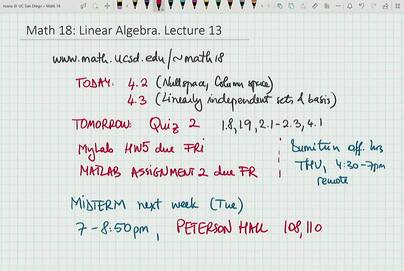 Ioana @ UC San Diego • Math 18
Math 18: Linear Algebra. Lecture 13
www.math.ucsd.edu/~math18
TODAY: 4.2 (Nullspace, Column space)
4.3 (Linearly independent sets & basis)
TOMORROW: Quiz 2 1.8, 1.9, 2.1-2.3, 4.1
MyLab HW5 due FRI
MATLAB ASSIGNMENT 2 due FR
off. hrs
THU, 4:30-7pm
remote
MIDTERM next week (Tue)
7-8:50pm, PETERSON HALL 108, 110